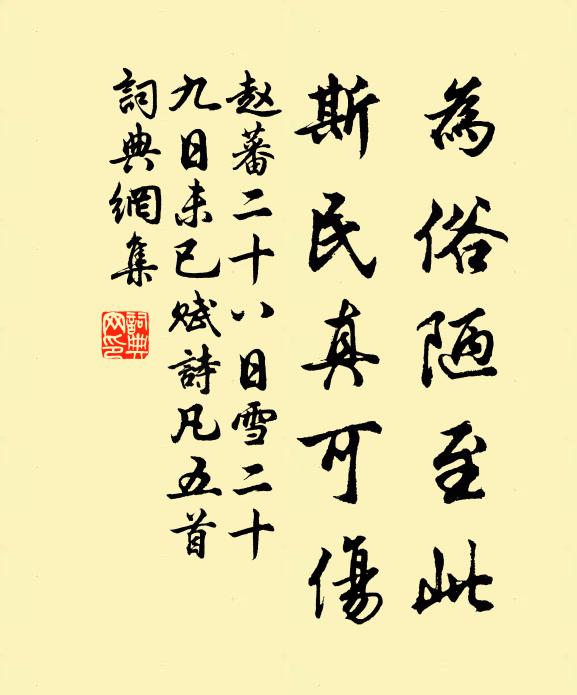 為俗陋至此
斯民真可傷
赵蕃二十八日雪二十
九日未已赋詩凡五首
詞典網集
詞典網印